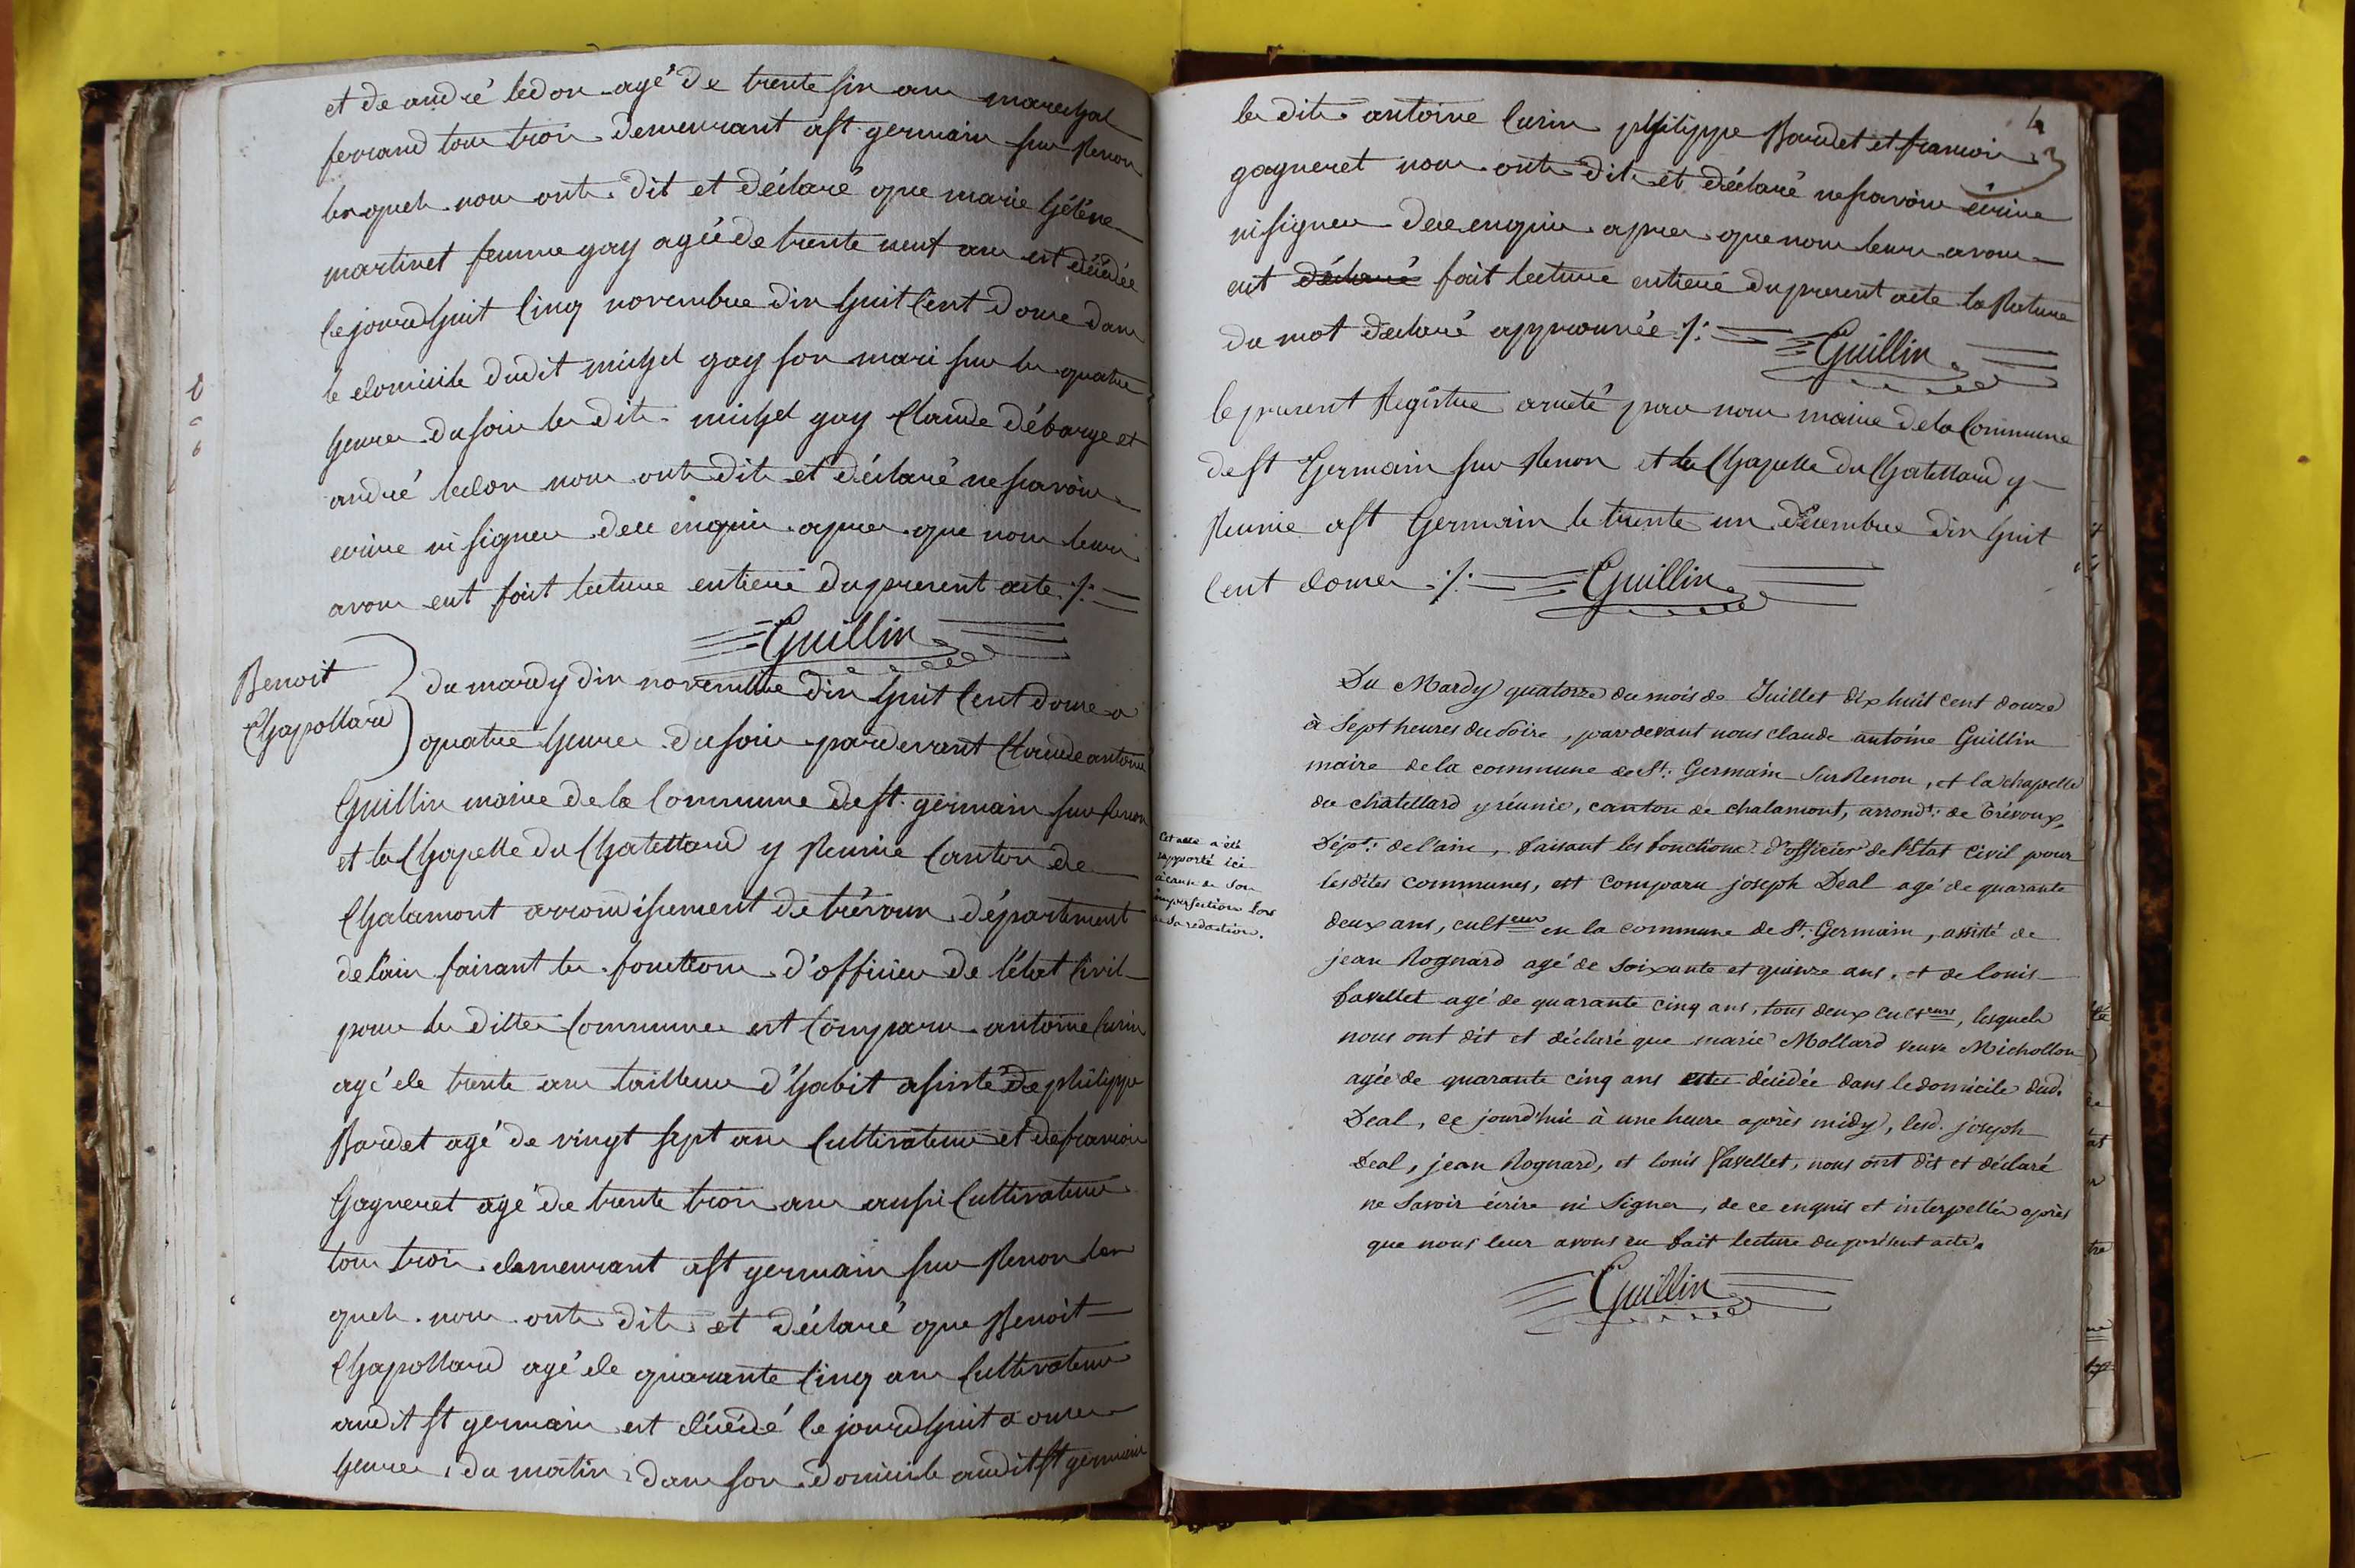 et de andré ledon agé de trente six ans marechal
ferrand tous trois demeurant a st germain sur Renon
lesquels nous onts dit et déclaré que marie hélène
martinet femme gay agée de trente neuf ans est décédée
ce jourd'huit cinq novembre dix huit cent douse dans
le domicile dudit michel gay son mari sur les quatre
heures du soir les dits michel gay Claude débarge et
andré ledon nous onts dits et déclaré ne savoir
ecrire ni signer de ce enquis apres que nous leurs
avons eut fait lecture entiere du present acte ./.
Guillin
Benoit
Chapollard
du mardy dix novembre dix huit cent douse a
quatre heures du soir pardevant Claude antoine
Guillin maire de la Commune de st. germain sur Renon
et la Chapelle du Chatellard y Réunie Canton de
Chalamont arrondisement de trévoux département
de l'ain faisant les fonctions d'officier de l'état Civil
pour les dittes Communes est Comparu antoine Curin
agé de trente ans tailleur d'habit assisté de philippe
Bardet agé de vingt sept ans Cultivateur et de francois
Gagneret agé de trente trois ans aussi Cultivateur
tous trois demeurant a st germain sur Renon les
quels nous onts dits et déclaré que Benoit
Chapollard agé de quarante Cinq ans Cultivateur
audit st germain est décédé ce jourd'huit a onse
heures du matin dans son domicile audit st germain
les dits antoine Curin philippe Bardet et francois
gagneret nous onts dits et déclaré ne savoir écrire
ni signer de ce enquis apres que nous leurs avons
eut déclaré fait lecture entiere du present acte la Rature
du mot declaré approuvée ./.
Guillin
le present Registre arreté par nous maire de la Commune
de st Germain sur Renon et la Chapelle du Chatellard y
Réunie a st Germain le trente un décembre dix huit
Cent douse ./.
Guillin
Cet acte a été
rapporté ici
à cause de son
imperfection lors
de sa redaction.
Du Mardy quatorze du mois de Juillet dix huit cent douze
à sept heures du soire, pardevant nous claude antoine Guillin
maire de la commune de St. Germain sur Renon, et la chapelle
du chatellard y réunie, canton de chalamont, arrondt: de Trévoux,
Dépt: de l'ain, faisant les fonctions d'officier de l'Etat Civil pour
lesdites communes, est comparu joseph Deal agé de quarante
deux ans, culteur en la commune de St. Germain, assisté de
jean Rognard agé de soixante et quinze ans, et de louis
favellet agé de quarante cinq ans, tous deux culteurs, lesquels
nous ont dit et déclaré que marie Mollard veuve Michollon
agée de quarante cinq ans est décédée dans le domicile dud.
Deal, ce jourd'hui à une heure après midy, lesd. joseph
Deal, jean Rognard, et louis favellet, nous ont dit et déclaré
ne savoir écrire ni signer, de ce enquis et interpellés après
que nous leur avons eu fait lecture du présent acte.
Guillin